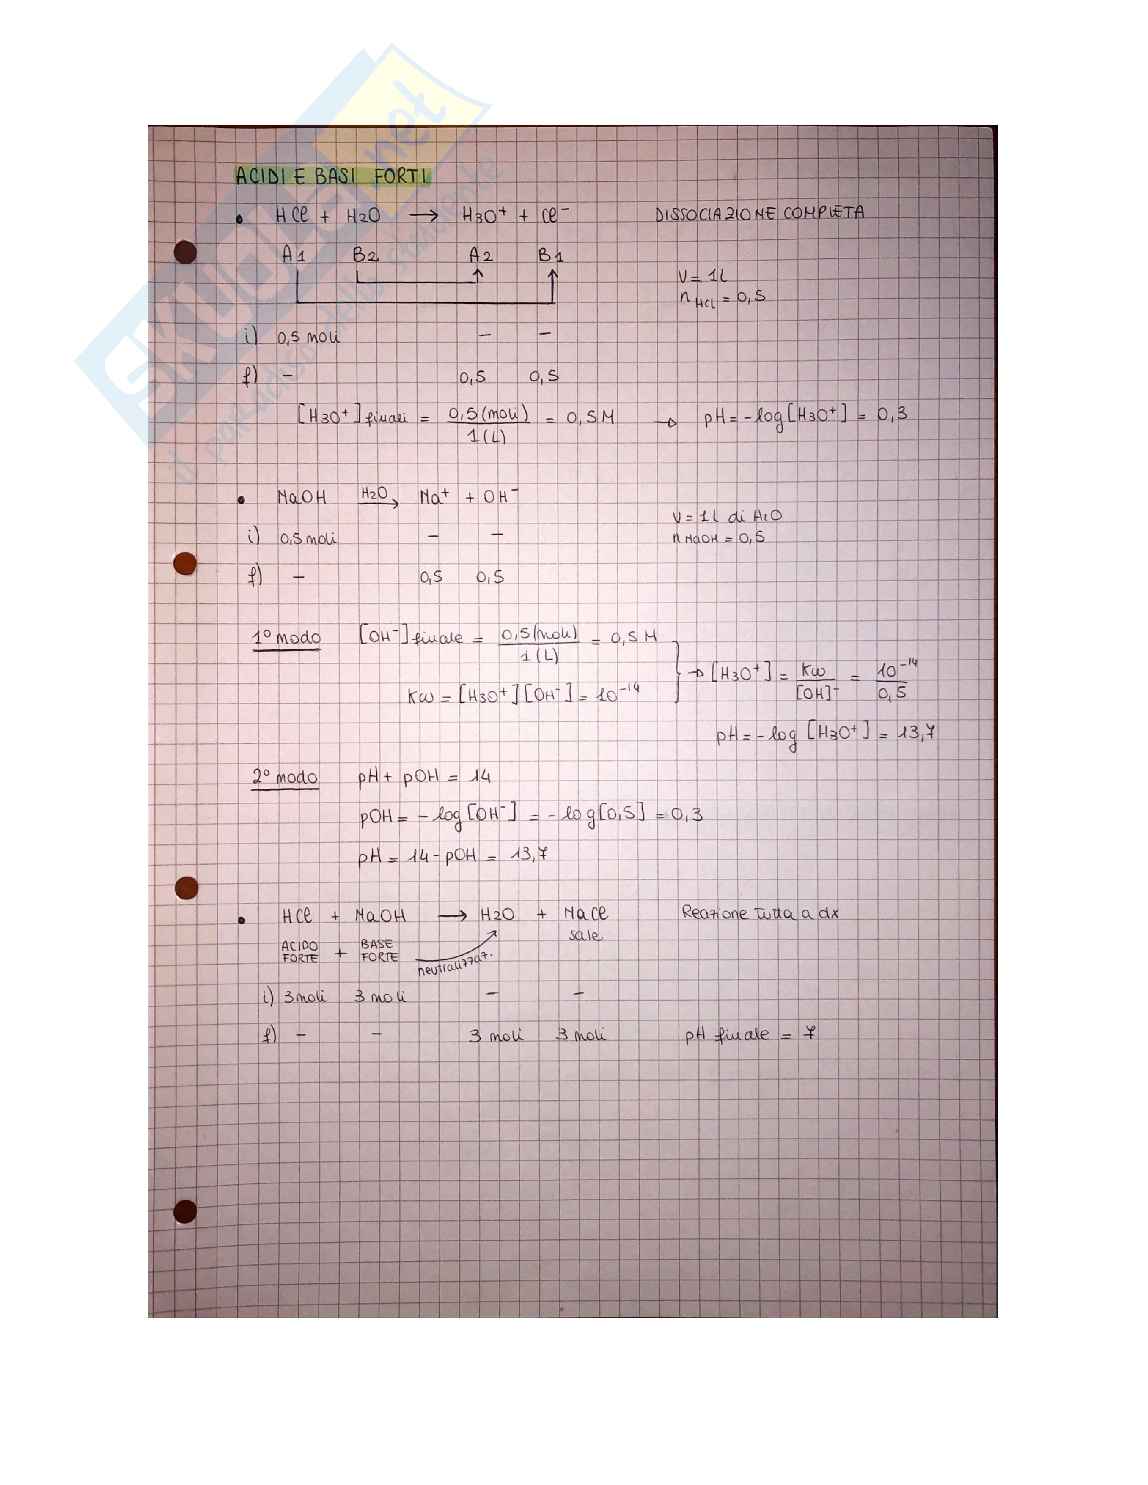 ACIDI E BASI FORTI
• HCl + H2O → H3O⁺ + Cl⁻ DISSOCIAZIONE COMPLETA
A1 B2 A2 B1
V = 1L
n HCl = 0,5
i) 0,5 moli – –
f) – 0,5 0,5
[H3O⁺] finali = 0,5 (moli) / 1 (L) = 0,5 M → pH = -log [H3O⁺] = 0,3
• NaOH H2O→ Na⁺ + OH⁻
V = 1L di H2O
i) 0,5 moli – – n NaOH = 0,5
f) – 0,5 0,5
1° modo [OH⁻] finale = 0,5 (moli) / 1 (L) = 0,5 M
→ [H3O⁺] = Kw / [OH]⁻ = 10⁻¹⁴ / 0,5
Kw = [H3O⁺][OH⁻] = 10⁻¹⁴
pH = -log [H3O⁺] = 13,7
2° modo pH + pOH = 14
pOH = -log [OH⁻] = -log [0,5] = 0,3
pH = 14 - pOH = 13,7
• HCl + NaOH → H2O + NaCl Reazione tutta a dx
sale
ACIDO FORTE + BASE FORTE neutralizzaz.
i) 3 moli 3 moli – –
f) – – 3 moli 3 moli pH finale = 7
SKUOLA.net
il portale dello studente